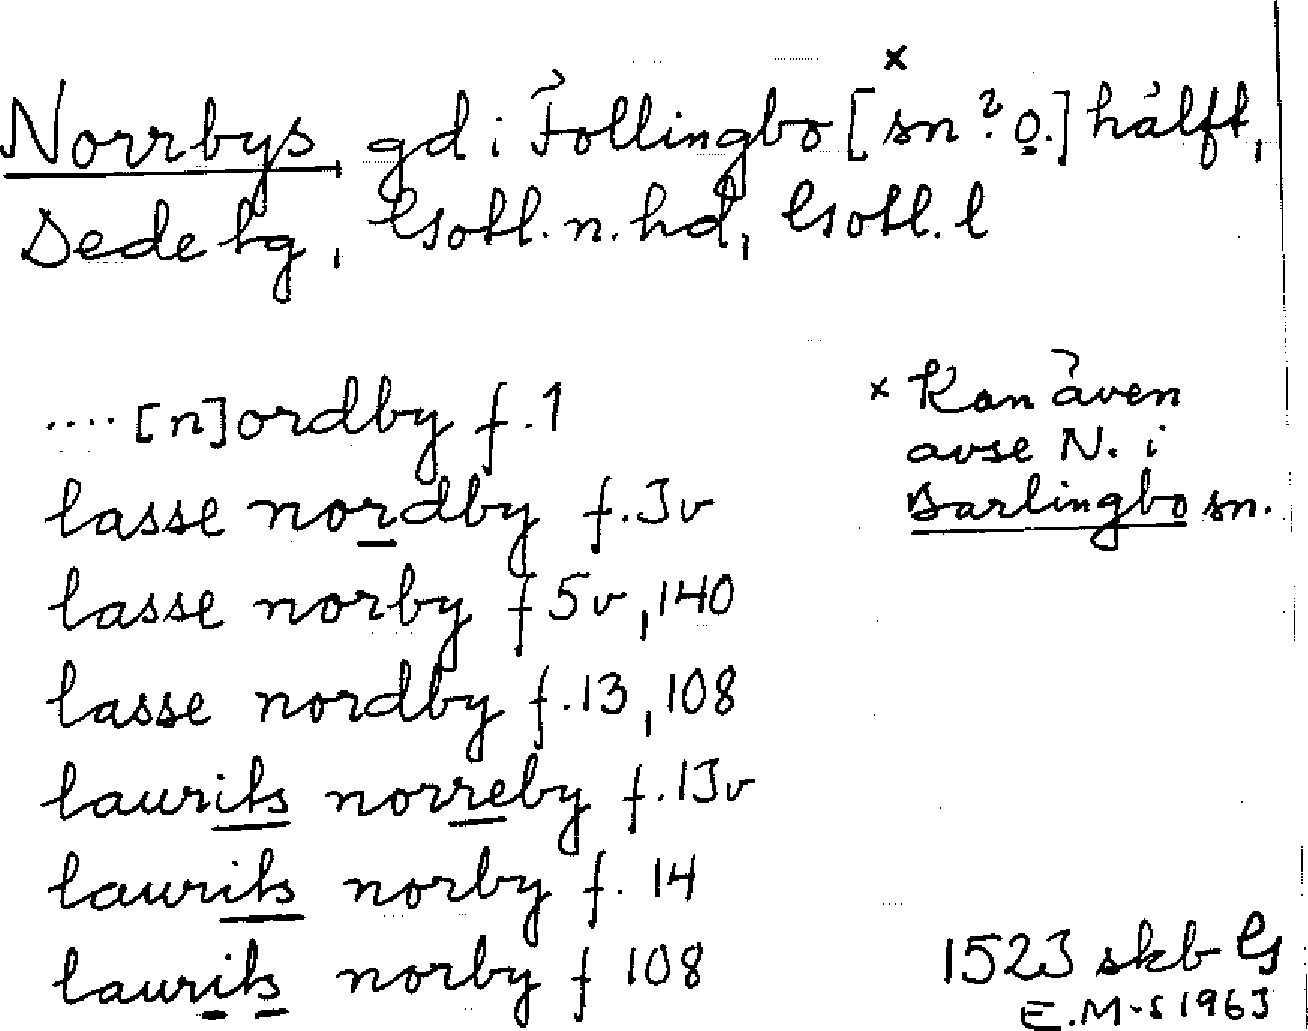 Norrbys, gd i Follingbo [sn? o.] hälft,
Dede tg, Gotl. n. hd, Gotl. l
.... [n]ordby f. 1
lasse nordby f. 3v
lasse norby f 5v, 140
lasse nordby f. 13, 108
laurits norreby f. 13v
laurits norby f. 14
laurits norby f 108
x Kan även
avse N. i
Barlingbo sn.
1523 skb G
E.M-S 1963